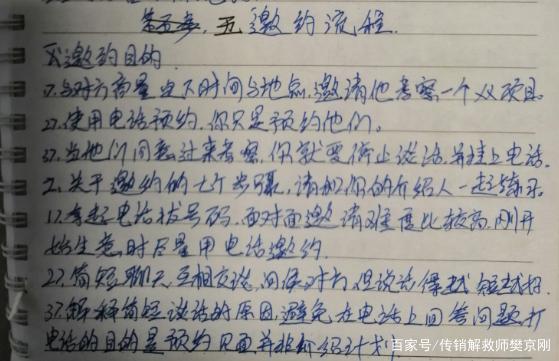 五邀约流程.
邀约目的.
1.与对方商量当下时间与地点,邀请他考察一个XX项目
2.使用电话预约,你只是预约他们.
3.当他们同意过来考察,你就要停止谈话,并挂上电话.
2.关于邀约的七个步骤,请和你的介绍人一起练习
1.拿起电话拔号码,面对面邀请难度比较高,刚开
始生意时尽量用电话邀约.
2.简短聊天,互相交谈,问候对方,但说话得越短越好.
3.解释简短谈话的原因,避免在电话上回答问题,打
电话的目的是预约见面并非介绍计划
百家号/传销解救师樊京刚